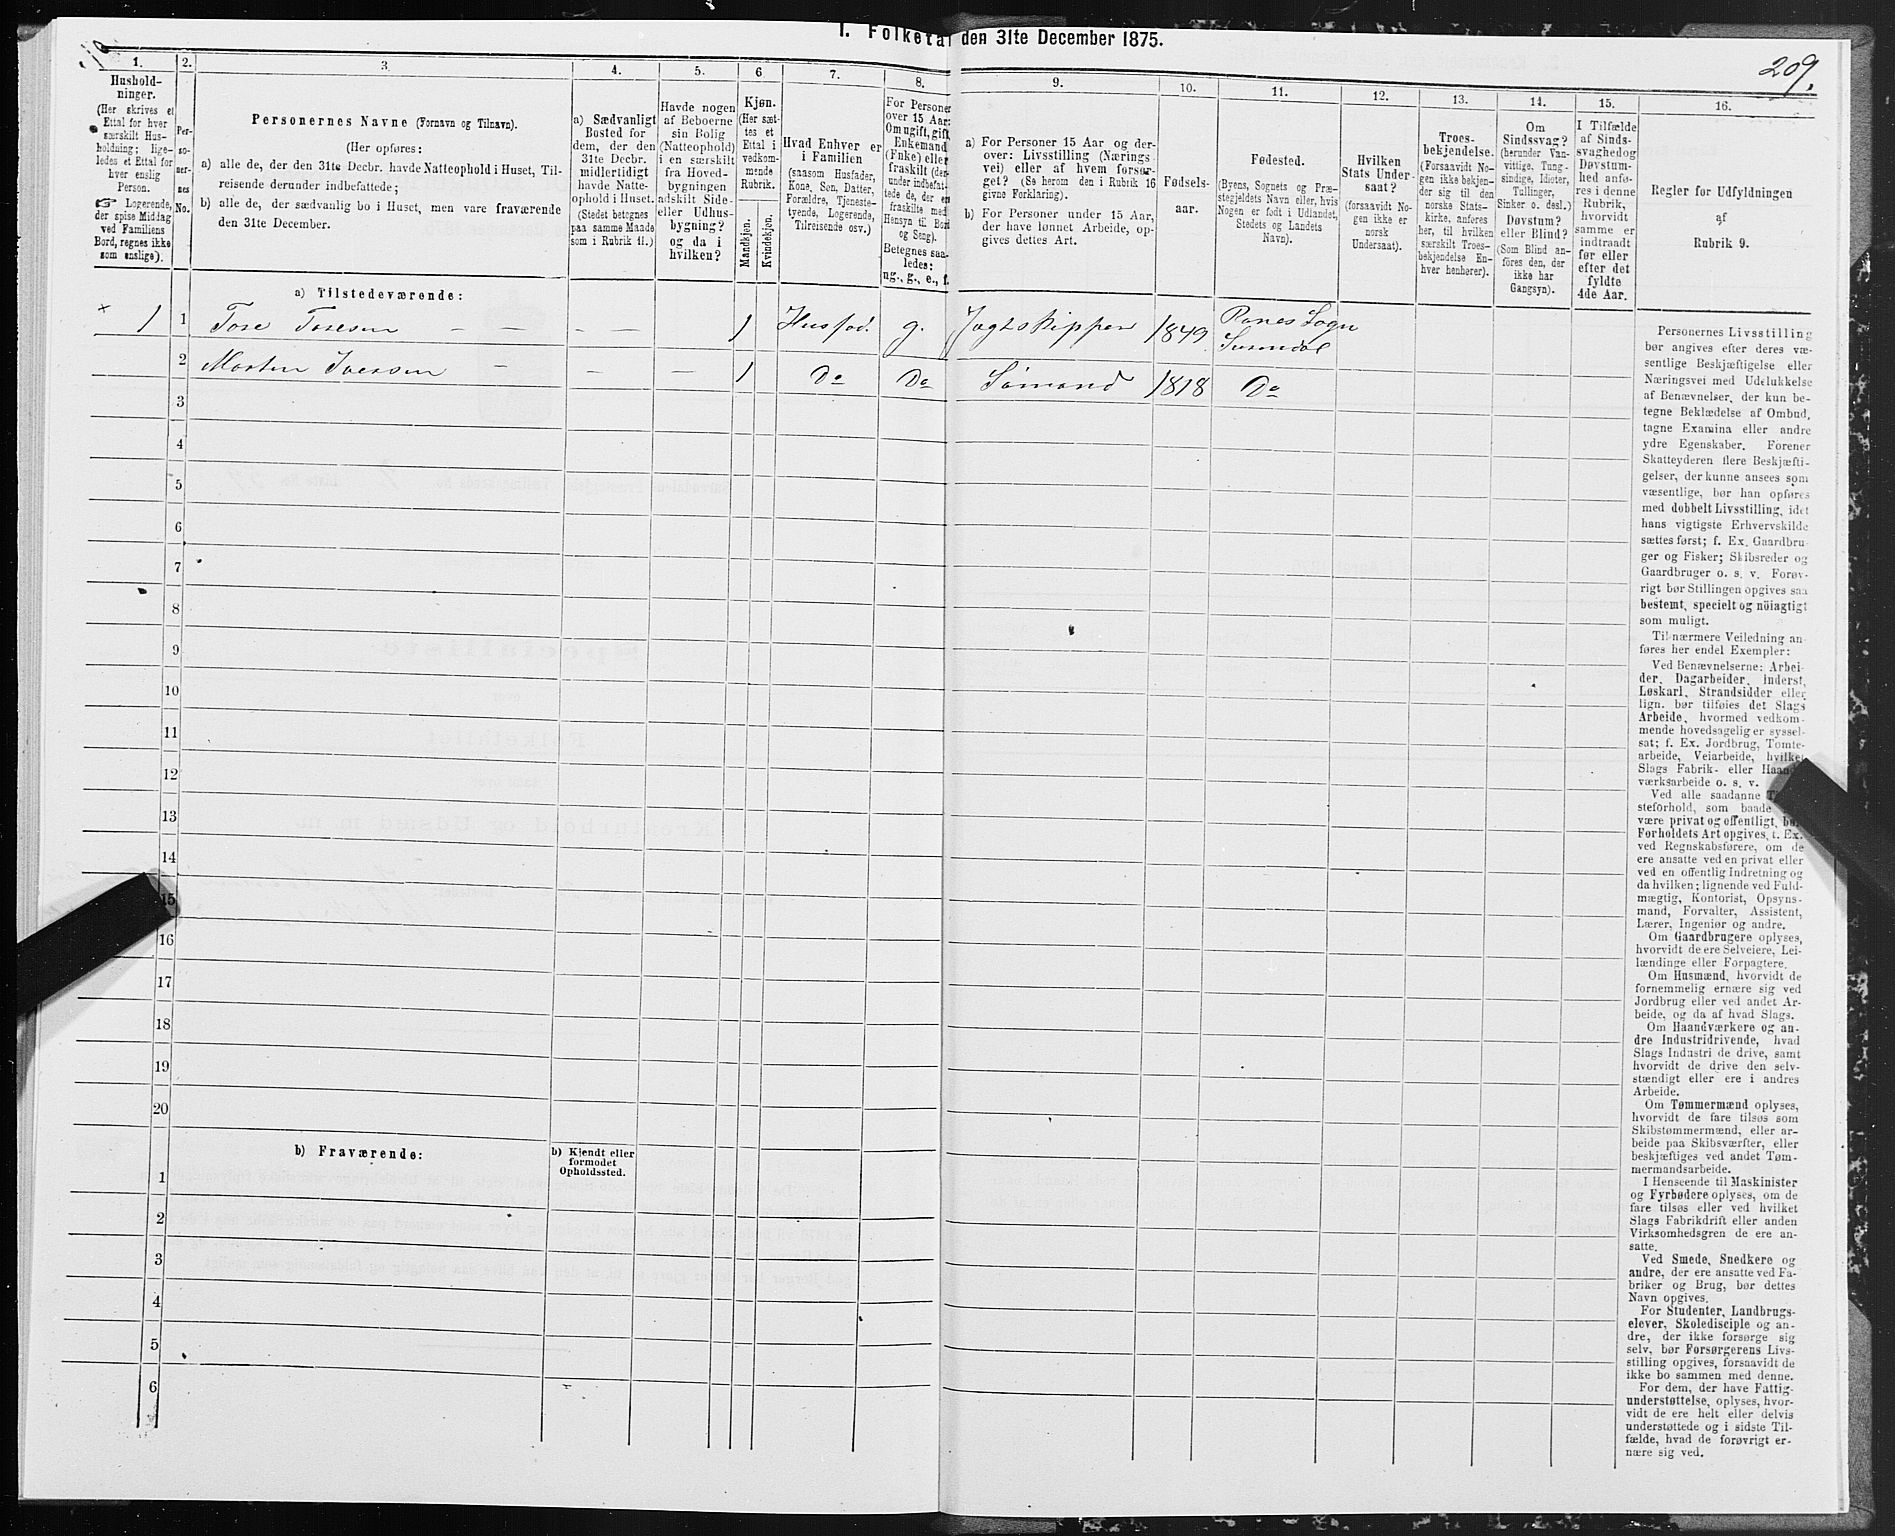 I. Folketal den 31te December 1875.
209.
1.
2.
3.
4.
5.
6
7.
8.
9.
10.
11.
12.
13.
14.
15.
16.
Hushold-
ninger.
(Her skrives et
Ettal for hver
særskilt Hus-
holdning; lige-
ledes et Ettal for
hver enslig
Person.
☞ Logerende,
der spise Middag
ved Familiens
Bord, regnes ikke
som enslige).
Per-
so-
ner-
nes
No.
Personernes Navne (Fornavn og Tilnavn).
(Her opføres:
a) alle de, der den 31te Decbr. havde Natteophold i Huset, Til-
reisende derunder indbefattede;
b) alle de, der sædvanlig bo i Huset, men vare fraværende
den 31te December.
a) Sædvanligt
Bosted for
dem, der den
31te Decbr.
midlertidigt
havde Natte-
ophold i Huset.
(Stedet betegnes
paa samme Maade
som i Rubrik 11.)
Havde nogen
af Beboerne
sin Bolig
(Natteophold)
i en særskilt
fra Hoved-
bygningen
adskilt Side-
eller Udhus-
bygning?
og da i
hvilken?
Kjøn.
(Her sæt-
tes et
Ettal i
vedkom-
mende
Rubrik.
Mandkjøn.
Kvindekjøn.
Hvad Enhver er
i Familien
(saasom Husfader,
Kone, Søn, Datter,
Forældre, Tjeneste-
tyende, Logerende,
Tilreisende osv.)
For Personer
over 15 Aar:
Om ugift, gift,
Enkemand
(Enke) eller
fraskilt (der-
under indbefat-
tede de, der ere
fraskilte med
Hensyn til Bord
og Seng).
Betegnes saa-
ledes:
ug., g., e., f.
a) For Personer 15 Aar og der-
over: Livsstilling (Nærings-
vei) eller af hvem forsør-
get? (Se herom den i Rubrik 16
givne Forklaring).
b) For Personer under 15 Aar,
der have lønnet Arbeide, op-
gives dettes Art.
Fødsels-
aar.
Fødested.
(Byens, Sognets og Præ-
stegjeldets Navn eller, hvis
Nogen er født i Udlandet,
Stedets og Landets
Navn).
Hvilken
Stats Under-
saat?
(forsaavidt No-
gen ikke er
norsk
Undersaat).
Troes-
bekjendelse.
(Forsaavidt No-
gen ikke bekjen-
der sig til den
norske Stats-
kirke, anføres
her, til hvilken
særskilt Troes-
bekjendelse En-
hver henhører).
Om
Sindssvag?
(herunder Van-
vittige, Tung-
sindige, Idioter,
Tullinger,
Sinker o. desl.)
Døvstum?
eller Blind?
(Som Blind an-
føres den, der
ikke har
Gangsyn).
I Tilfælde
af Sinds-
svaghed og
Døvstum-
hed anfø-
res i denne
Rubrik,
hvorvidt
samme er
indtraadt
før eller
efter det
fyldte
4de Aar.
Regler for Udfyldningen
af
Rubrik 9.
a) Tilstedeværende:
× 1 1 Tore Toresen – – – – 1 Husfad. g. Jægtskipper 1849 Ranes Sogn
Surendal
2 Morten Iversen – – – 1 Do Do Sømand 1818 Do
3
4
5
6
7
8
9
10
11
12
13
14
15
16
17
18
19
20
b) Fraværende:
b) Kjendt eller
formodet
Opholdssted.
1
2
3
4
5
6
Personernes Livsstilling
bør angives efter deres væ-
sentlige Beskjæftigelse eller
Næringsvei med Udelukkelse
af Benævnelser, der kun be-
tegne Beklædelse af Ombud,
tagne Examina eller andre
ydre Egenskaber. Forener
Skatteyderen flere Beskjæfti-
gelser, der kunne ansees som
væsentlige, bør han opføres
med dobbelt Livsstilling, idet
hans vigtigste Erhvervskilde
sættes først; f. Ex. Gaardbru-
ger og Fisker; Skibsreder og
Gaardbruger o. s. v. Forøv-
rigt bør Stillingen opgives saa
bestemt, specielt og nöiagtigt
som muligt.
Til nærmere Veiledning an-
føres her endel Exempler:
Ved Benævnelserne: Arbei-
der, Dagarbeider, Inderst,
Løskarl, Strandsidder eller
lign. bør tilføies det Slags
Arbeide, hvormed vedkom-
mende hovedsagelig er syssel-
sat; f. Ex. Jordbrug, Tomte-
arbeide, Veiarbeide, hvilket
Slags Fabrik- eller Haand-
værksarbeide o. s. v.
Ved alle saadanne
steforhold, som baade
være privat og offentligt, bør
Forholdets Art opgives, t. Ex.
ved Regnskabsførere, om de
ere ansatte ved en privat eller
ved en offentlig Indretning og
da hvilken; lignende ved Fuld-
mægtig, Kontorist, Opsyns-
mand, Forvalter, Assistent,
Lærer, Ingeniør og andre.
Om Gaardbrugere oplyses,
hvorvidt de ere Selveiere, Lei-
lændinge eller Forpagtere.
Om Husmænd, hvorvidt de
fornemmelig ernære sig ved
Jordbrug eller ved andet Ar-
beide, og da af hvad Slags.
Om Haandværkere og an-
dre Industridrivende, hvad
Slags Industri de drive, samt
hvorvidt de drive den selv-
stændigt eller ere i andres
Arbeide.
Om Tømmermænd oplyses,
hvorvidt de fare tilsøs som
Skibstømmermænd, eller ar-
beide paa Skibsværfter, eller
beskjæftiges ved andet Tøm-
mermandsarbeide.
I Henseende til Maskinister
og Fyrbødere oplyses, om de
fare tilsøs eller ved hvilket
Slags Fabrikdrift eller anden
Virksomhedsgren de ere an-
satte.
Ved Smede, Snedkere og
andre, der ere ansatte ved Fa-
briker og Brug, bør dettes
Navn opgives.
For Studenter, Landbrugs-
elever, Skoledisciple og an-
dre, der ikke forsørge sig
selv, bør Forsørgerens Livs-
stilling opgives, forsaavidt de
ikke bo sammen med denne.
For dem, der have Fattig-
understøttelse, oplyses, hvor-
vidt de ere helt eller delvis
understøttede og i sidste Til-
fælde, hvad de forøvrigt er-
nære sig ved.